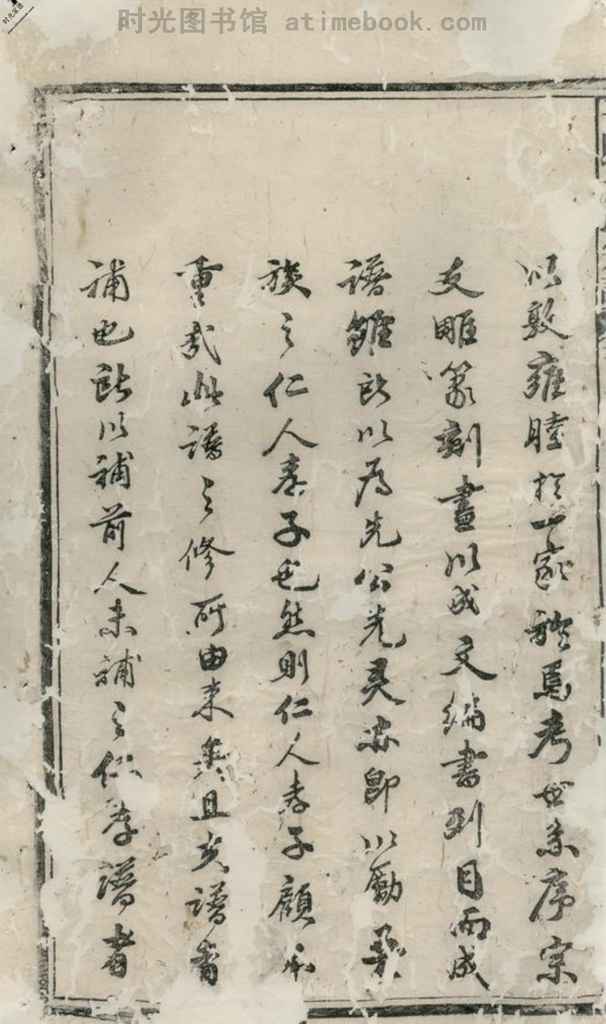 时光图书馆 atimebook.com
以敦雍睦於一家於焉考世系序宗
支雕篆刻畫以成文編書列目而成
譜雖所以為先公先靈亦即以勵吾
族之仁人孝子也然則仁人孝子顧不
重哉此譜之修所由来矣且夫譜者
補也所以補前人未補之仁孝譜者